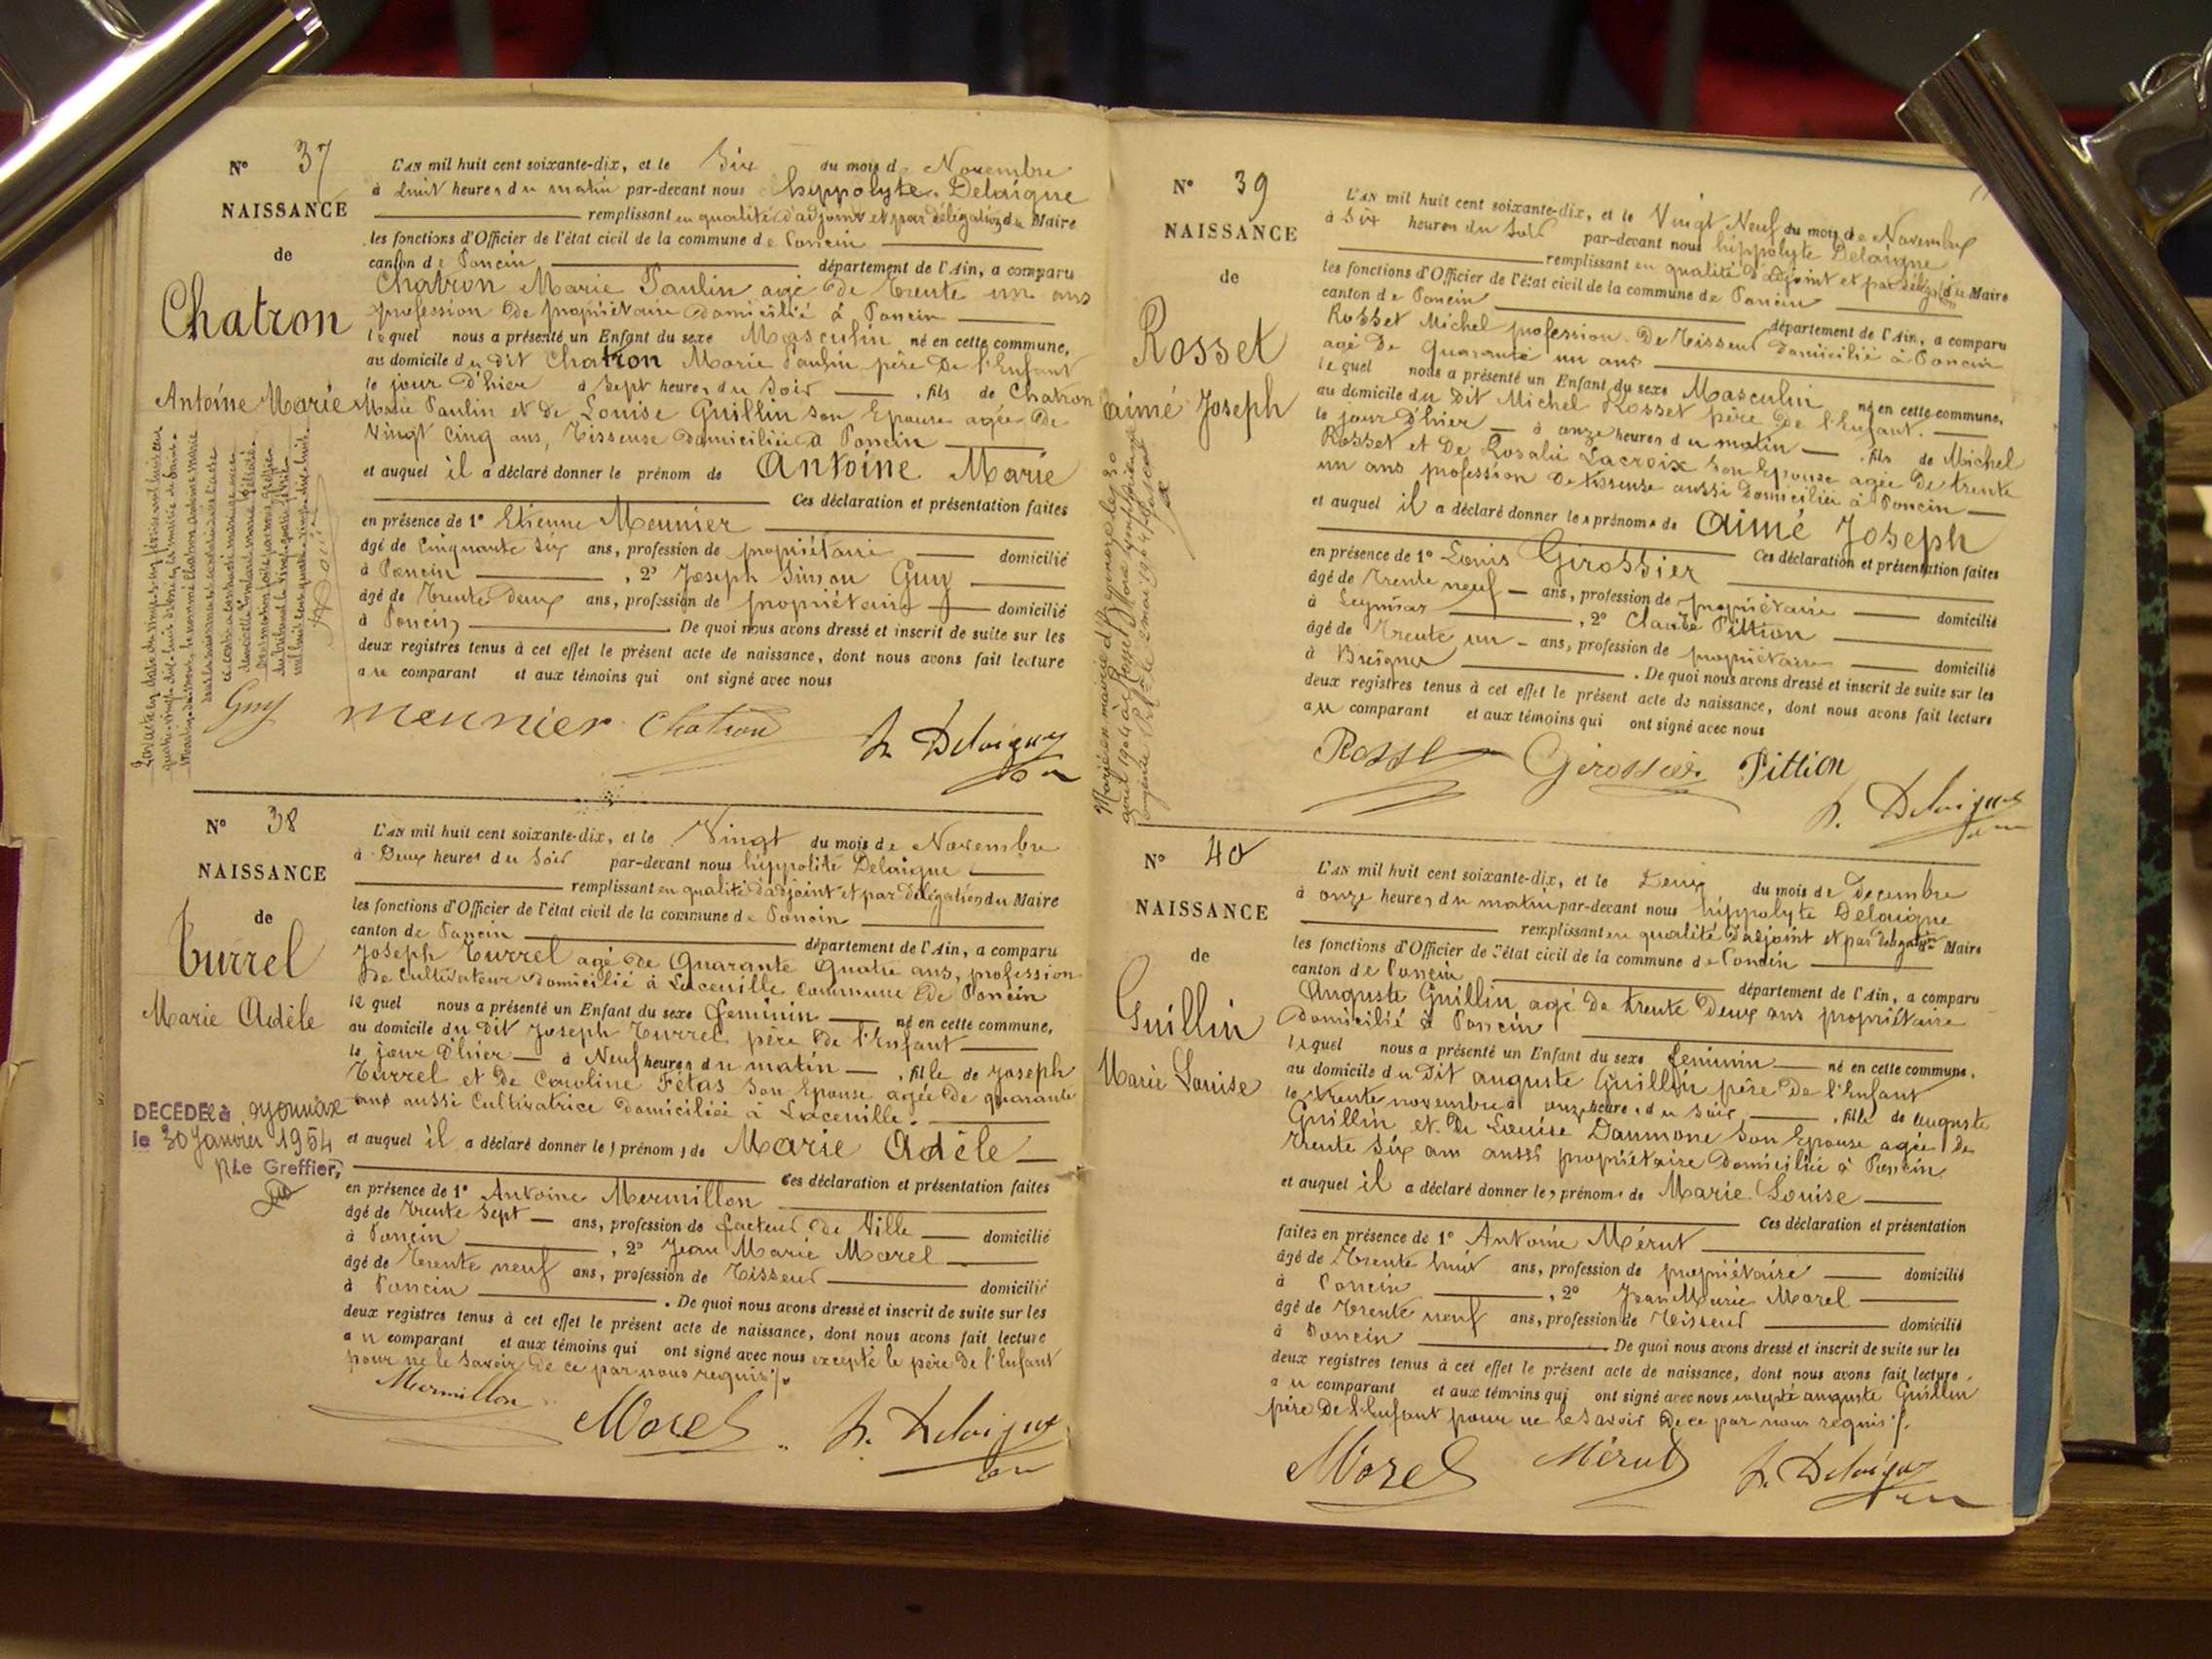 N° 37
NAISSANCE
de
Chatron
Antoine Marie
L'AN mil huit cent soixante-dix, et le Six du mois de Novembre
à huit heures du matin par-devant nous hippolyte Delaigue
remplissant en qualité d'adjoint et par délégation du Maire
les fonctions d'Officier de l'état civil de la commune de Poncin
canton de Poncin département de l'Ain, a comparu
Chatron Marie Paulin agé de trente un ans
profession de propriétaire domicilié à Poncin
lequel nous a présenté un Enfant du sexe Masculin né en cette commune,
au domicile du dit Chatron Marie Paulin père de l'Enfant
le jour d'hier à Sept heures du Soir , fils de Chatron
Marie Paulin et de Louise Guillin son Epouse agée de
Vingt Cinq ans, Tisseuse domiciliée à Poncin
et auquel il a déclaré donner le prénom de Antoine Marie
Ces déclaration et présentation faites
en présence de 1° Etienne Meunier
âgé de Cinquante Six ans, profession de propriétaire domicilié
à Poncin , 2° Joseph Simon Guy
âgé de Trente Deux ans, profession de propriétaire domicilié
à Poncin . De quoi nous avons dressé et inscrit de suite sur les
deux registres tenus à cet effet le présent acte de naissance, dont nous avons fait lecture
au comparant et aux témoins qui ont signé avec nous
Guy Meunier Chatron h. Delaigue
N° 38
NAISSANCE
de
Turrel
Marie Adèle
DÉCÉDÉE à Oyonnax
le 30 Janvier 1954
Le Greffier,
L'AN mil huit cent soixante-dix, et le Vingt du mois de Novembre
à Deux heures du Soir par-devant nous hippolite Delaigue
remplissant en qualité d'adjoint et par Délégation du Maire
les fonctions d'Officier de l'état civil de la commune de Poncin
canton de Poncin département de l'Ain, a comparu
Joseph Turrel agé de Quarante Quatre ans, profession
de Cultivateur domicilié à Commune de Poncin
lequel nous a présenté un Enfant du sexe feminin né en cette commune,
au domicile du dit Joseph Turrel père de l'Enfant
le jour d'hier à Neuf heures du matin , fille de Joseph
Turrel et de Caroline Fétas son Epouse agée de quarante
ans aussi Cultivatrice domiciliée à
et auquel il a déclaré donner les prénoms de Marie Adèle
Ces déclaration et présentation faites
en présence de 1° Antoine Mermillon
âgé de Trente Sept ans, profession de facteur de Ville domicilié
à Poncin , 2° Jean Marie Morel
âgé de Trente neuf ans, profession de Tisseur domicilié
à Poncin . De quoi nous avons dressé et inscrit de suite sur les
deux registres tenus à cet effet le présent acte de naissance, dont nous avons fait lecture
au comparant et aux témoins qui ont signé avec nous excepté le père de l'Enfant
pour ne le Savoir de ce par nous requis
Mermillon Morel h. Delaigue
N° 39
NAISSANCE
de
Rosset
aimé Joseph
L'AN mil huit cent soixante-dix, et le Vingt Neuf du mois de Novembre
à Six heures du Soir par-devant nous hippolyte Delaigne
remplissant en qualité d'adjoint et par délégation du Maire
les fonctions d'Officier de l'état civil de la commune de Poncin
canton de Poncin département de l'Ain, a comparu
Rosset Michel profession de Tisseur domicilié à Poncin
agé de Quarante un ans
lequel nous a présenté un Enfant du sexe Masculin né en cette commune,
au domicile du Dit Michel Rosset père de l'Enfant.
le jour d'hier à onze heures du matin , fils de Michel
Rosset et De Rosalie Lacroix Son Epouse agée de trente
un ans profession de tisseuse aussi domiciliée à Poncin
et auquel il a déclaré donner les prénoms de Aimé Joseph
Ces déclaration et présentation faites
en présence de 1° Louis Girossier
âgé de Trente neuf ans, profession de propriétaire domicilié
à Leymiat , 2° Claude Pittion
âgé de Trente un ans, profession de propriétaire domicilié
à Breignes . De quoi nous avons dressé et inscrit de suite sur les
deux registres tenus à cet effet le présent acte de naissance, dont nous avons fait lecture
au comparant et aux témoins qui ont signé avec nous
Rosset Girossier Pittion
h. Delaigue
N° 40
NAISSANCE
de
Guillin
Marie Louise
L'AN mil huit cent soixante-dix, et le Deux du mois de Decembre
à onze heures du matin par-devant nous hippolyte Delaigne
remplissant en qualité d'adjoint et par délégation du Maire
les fonctions d'Officier de l'état civil de la commune de Poncin
canton de Poncin département de l'Ain, a comparu
Auguste Guillin agé de trente Deux ans propriétaire
domicilié à Poncin
lequel nous a présenté un Enfant du sexe feminin né en cette commune,
au domicile du Dit auguste Guillin père de l'Enfant
le trente novembre à onze heures du Soir , fille de Auguste
Guillin et De Louise Daumone Son Epouse agée de
trente Six ans aussi propriétaire Domiciliée à Poncin.
et auquel il a déclaré donner les prénoms de Marie Louise
Ces déclaration et présentation
faites en présence de 1° Antoine Mérut
âgé de Trente huit ans, profession de propriétaire domicilié
à Poncin , 2° Jean Marie Morel
âgé de Trente neuf ans, profession de Tisseur domicilié
à Poncin . De quoi nous avons dressé et inscrit de suite sur les
deux registres tenus à cet effet le présent acte de naissance, dont nous avons fait lecture
au comparant et aux témoins qui ont signé avec nous excepté auguste Guillin
père de l'Enfant pour ne le Savoir de ce par nous requis
Morel Mérut h. Delaigue